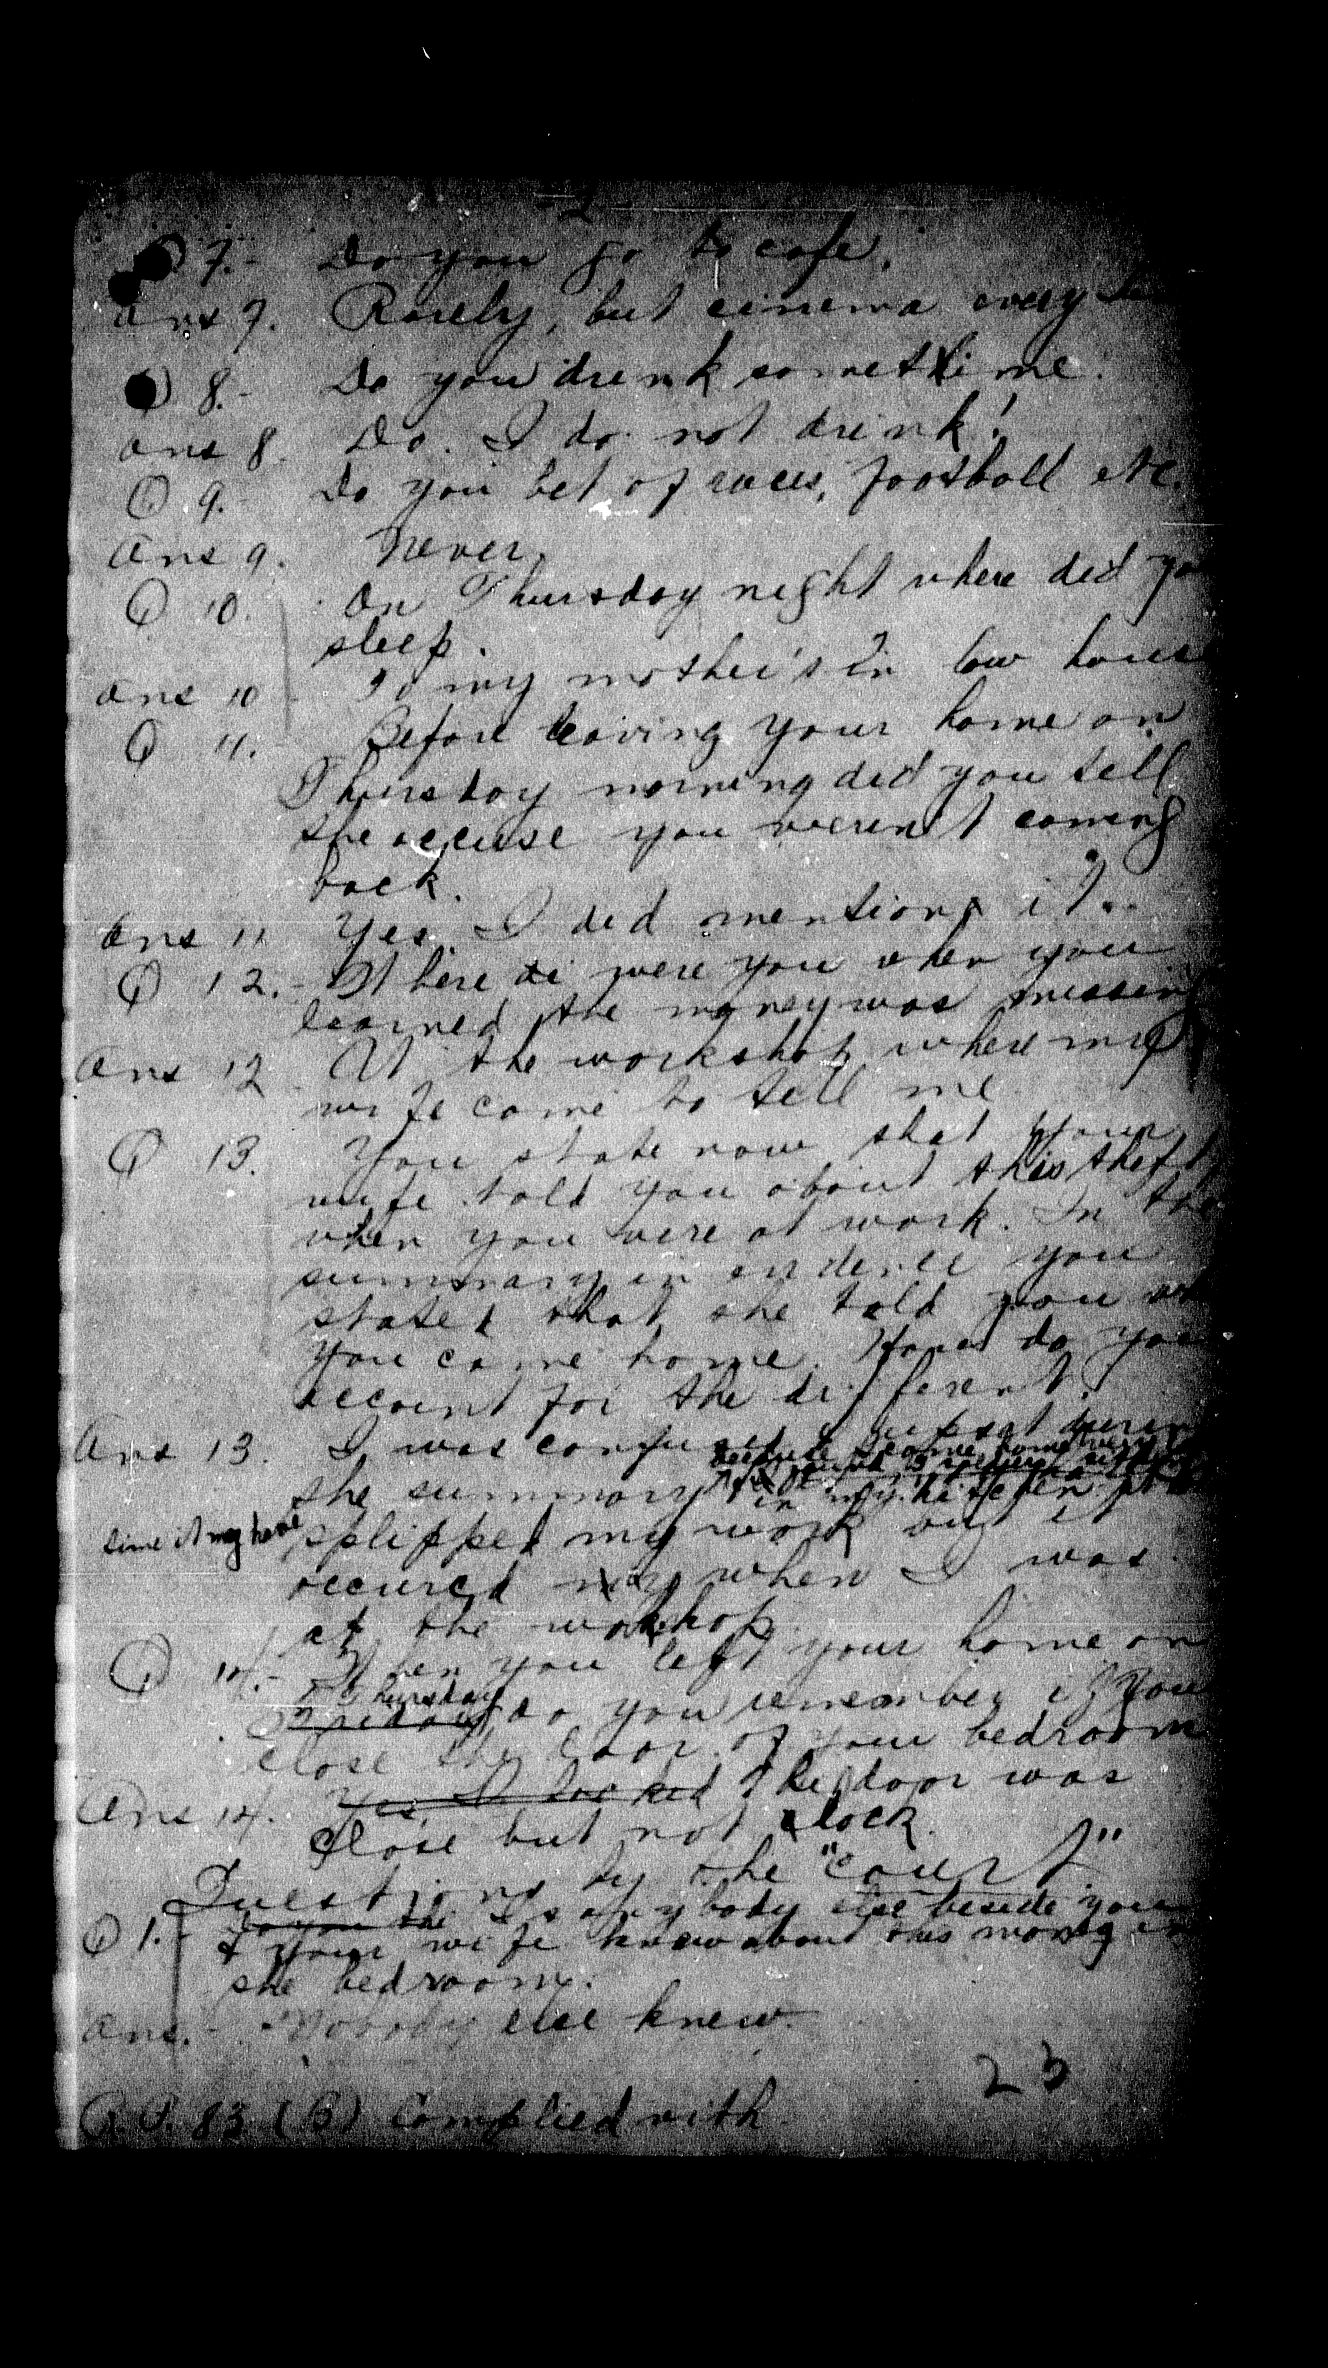 2
Q 7.- Do you go to cafe.
Ans 7. Rarely, but cinema
Q 8.- Do you drink sometime.
Ans 8. No. I do not drink!
Q 9.- Do you bet of races, football etc.
Ans 9. Never.
Q 10. On Thursday night where did you
sleep.
Ans 10 - To my mother's in law house
Q 11.- Before leaving your home on
Thursday morning did you tell
the accuse you weren't coming
back.
Ans 11 Yes. I did mention it..
Q 12.- Where were you when you
learned the money was missing
Ans 12 - At the workshop where my
wife come to tell me
Q 13. You state now that your
wife told you about this theft
when you were at work. In the
summary in evidence you
stated that she told you
you came home. How do you
account for the different.
Ans 13. I was confused
the summary in my kitchen
time it may have splipped my but it
occured when I was
at the workshop.
Q 14.- When you left your home on
Thursday Friday do you remember if you
close the door of your bedroom
Ans 14. Yes, I locked The door was
close but not lock.
Questions by the "court"
Q 1. - Do you the Is anybody else beside you
& your wife knew about this money in
the bedroom.
Ans. - Nobody else knew.
23
R.P. 83 (B) Complied with